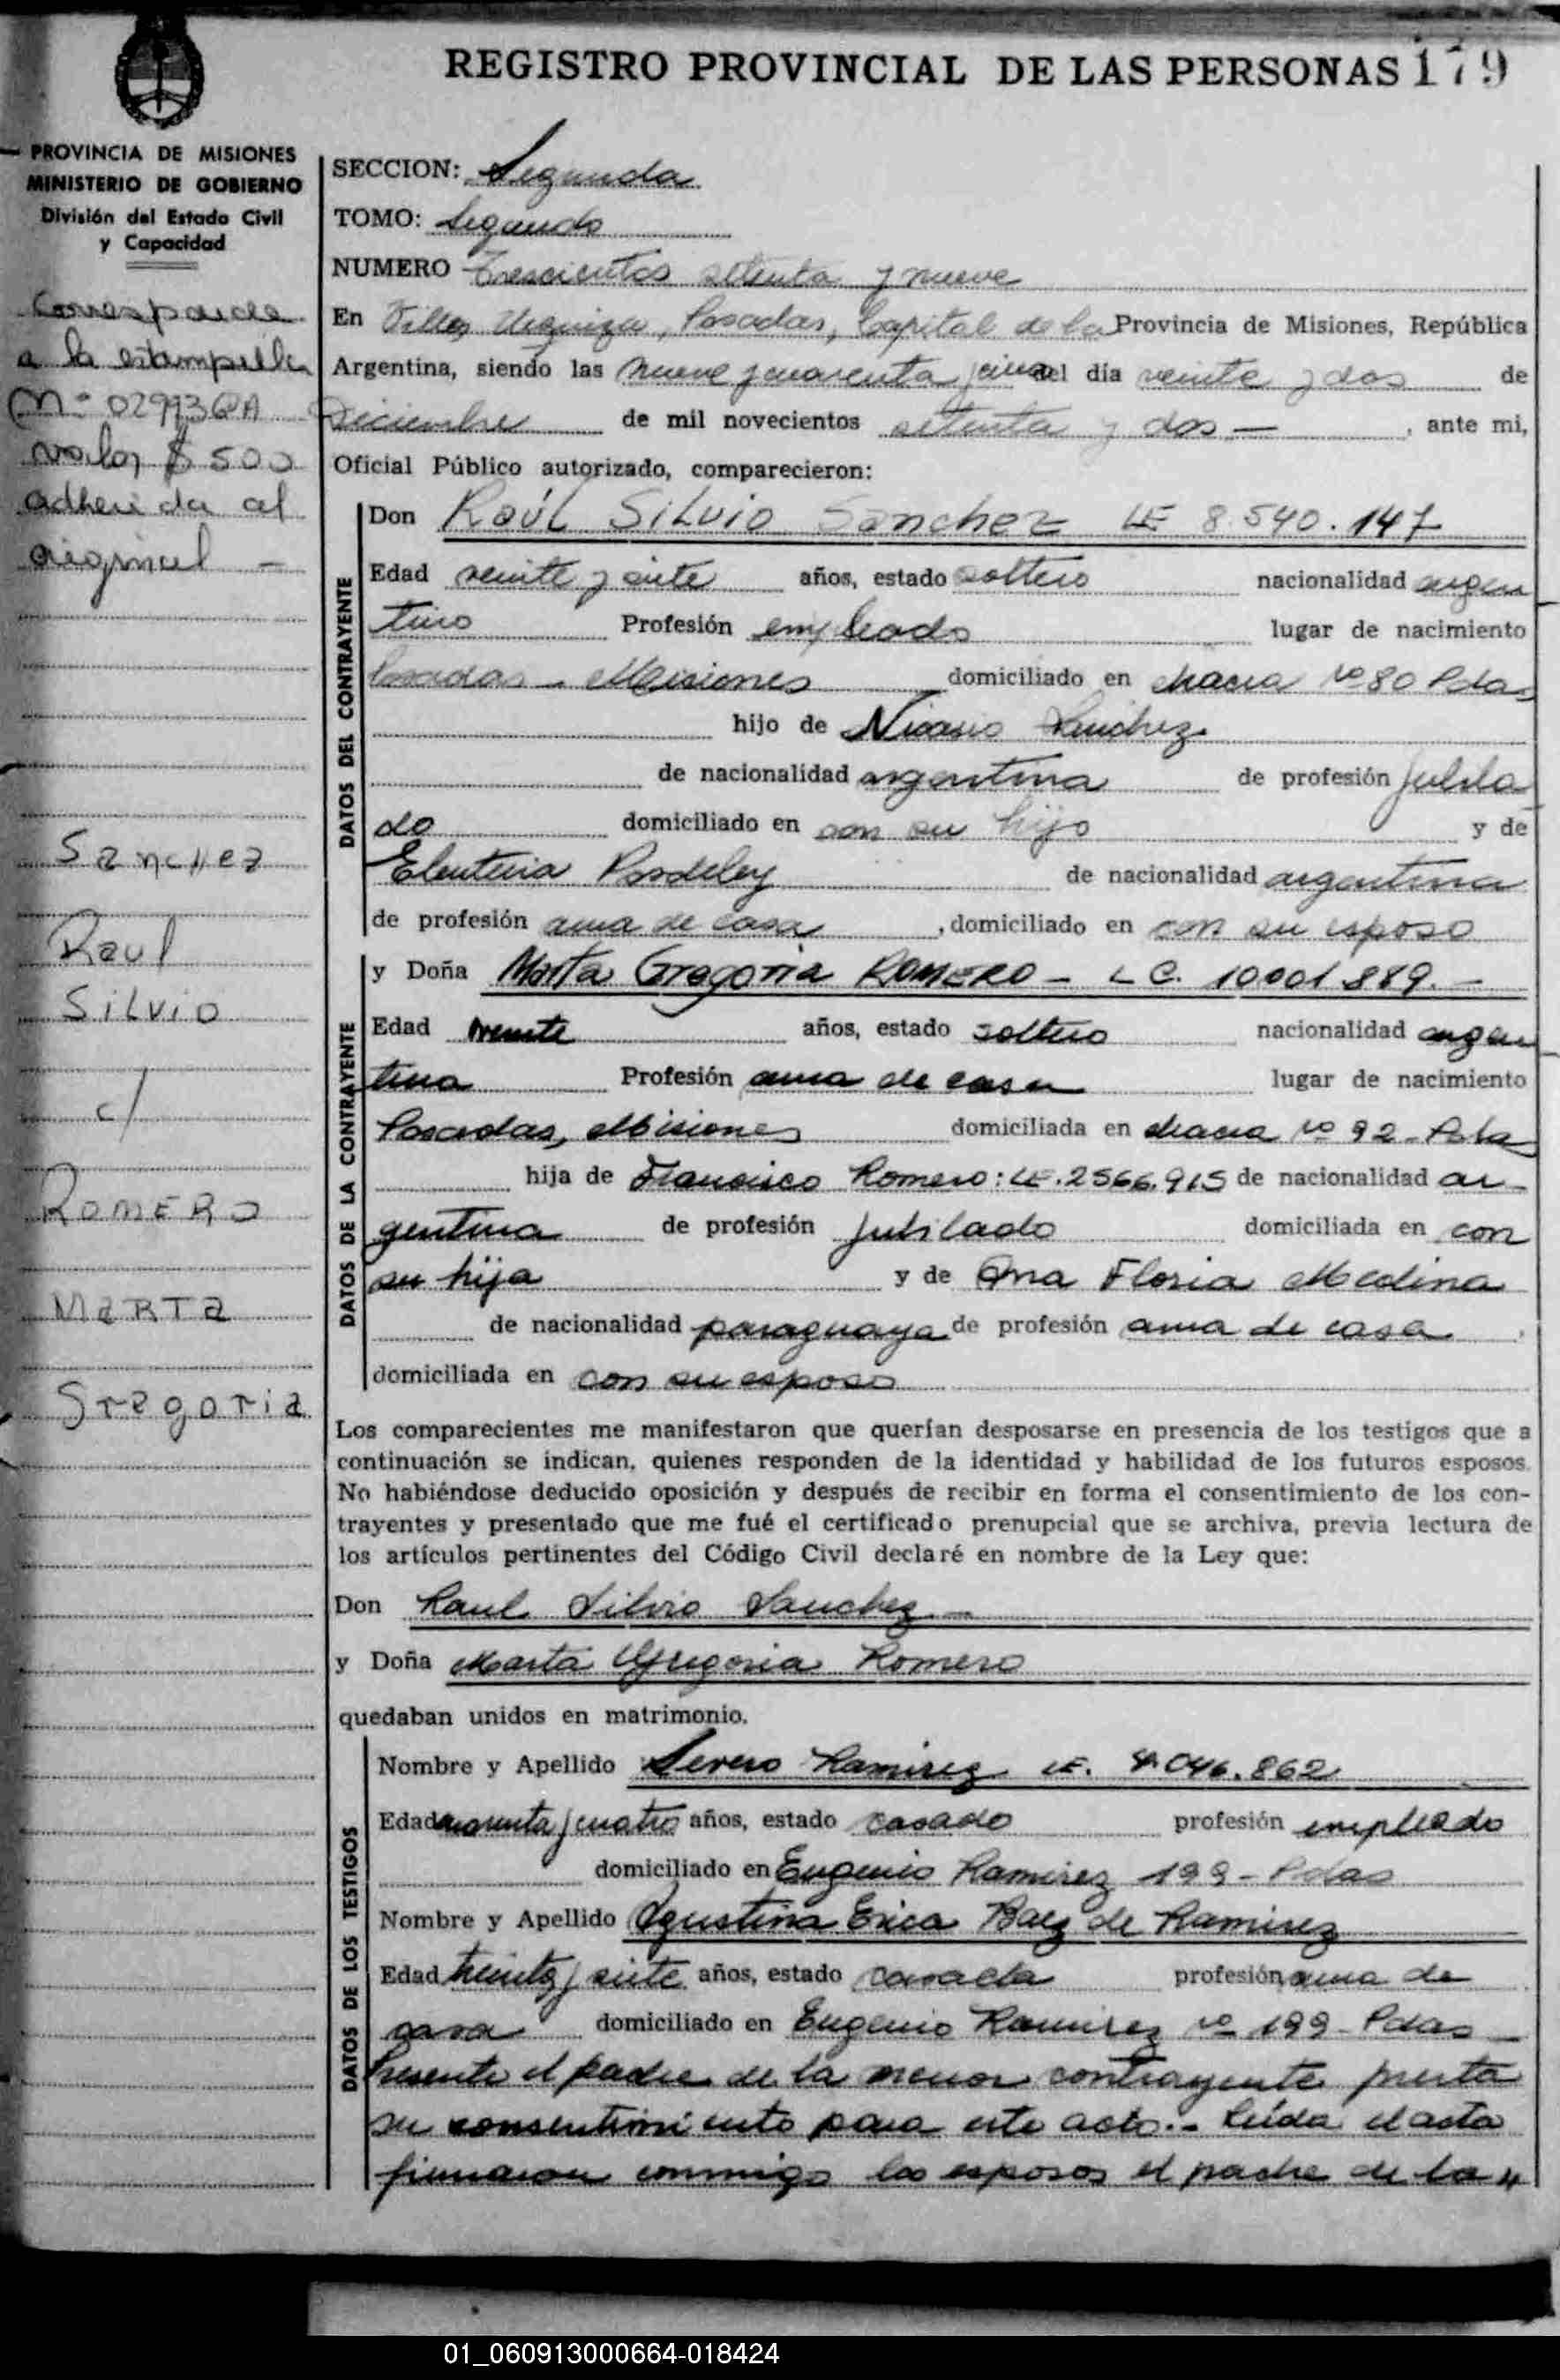 REGISTRO PROVINCIAL DE LAS PERSONAS 179
PROVINCIA DE MISIONES
MINISTERIO DE GOBIERNO
División del Estado Civil
y Capacidad
Corresponde
a la estampilla
Nº 029936QA
valor $ 500
adherida al
original -
Sanchez
Raul
Silvio
c/
ROMERO
MARTA
Gregoria
SECCION: Segunda
TOMO: Segundo
NUMERO Trescientos setenta y nueve
En Villa Urquiza, Posadas, Capital de la Provincia de Misiones, República
Argentina, siendo las nueve y cuarenta y cinco del día veinte y dos de
Diciembre de mil novecientos setenta y dos - , ante mi,
Oficial Público autorizado, comparecieron:
DATOS DEL CONTRAYENTE
Don Raúl Silvio Sanchez LE 8.540.147
Edad veinte y siete años, estado soltero nacionalidad argen
tino Profesión empleado lugar de nacimiento
Posadas - Misiones domiciliado en chacra Nº 80 Pdas
hijo de Nicasio Sanchez
de nacionalidad argentina de profesión Jubila
do domiciliado en con su hijo y de
Eleuteria de nacionalidad argentina
de profesión ama de casa , domiciliado en con su esposo
DATOS DE LA CONTRAYENTE
y Doña Marta Gregoria ROMERO - L C. 10.001.889.-
Edad veinte años, estado soltero nacionalidad argen
tina Profesión ama de casa lugar de nacimiento
Posadas, Misiones domiciliada en chacra Nº 92 - Pdas
hija de Francisco Romero: LE. 2566.915 de nacionalidad ar-
gentina de profesión Jubilado domiciliada en con
su hija y de Ana Floria Medina
de nacionalidad paraguaya de profesión ama de casa ,
domiciliada en con su esposo
Los comparecientes me manifestaron que querían desposarse en presencia de los testigos que a
continuación se indican, quienes responden de la identidad y habilidad de los futuros esposos.
No habiéndose deducido oposición y después de recibir en forma el consentimiento de los con-
trayentes y presentado que me fué el certificado prenupcial que se archiva, previa lectura de
los artículos pertinentes del Código Civil declaré en nombre de la Ley que:
Don Raul Silvio Sanchez -
y Doña Marta Gregoria Romero
quedaban unidos en matrimonio.
DATOS DE LOS TESTIGOS
Nombre y Apellido Severo Ramirez LE. 4.046.862
Edad cuarenta y cuatro años, estado casado profesión empleado
domiciliado en Eugenio Ramirez 199 - Pdas
Nombre y Apellido Agustina Erica Baez de Ramirez
Edad treinta y siete años, estado casada profesión ama de
casa domiciliado en Eugenio Ramirez Nº 199 - Pdas -
Presente el padre de la menor contrayente presta
su consentimiento para este acto.- Leída el acta
firmaron conmigo los esposos el padre de la
01_060913000664-018424